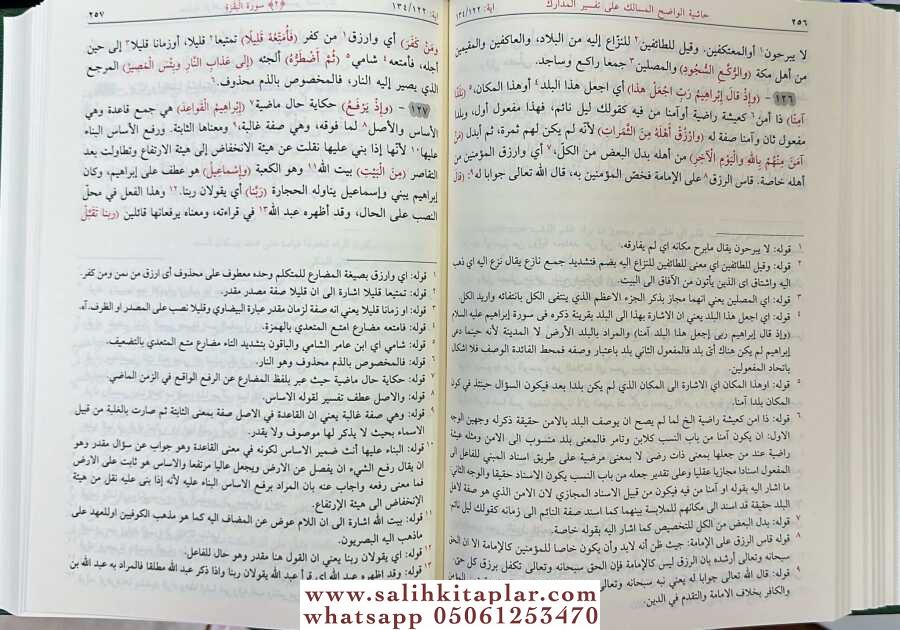 ٢٥٦
حاشية الواضح المسالك على تفسير المدارك
اية: ١٣٤/١٢٢
لا يبرحون١ أوالمعتكفين. وقيل للطائفين٢ للنزّاع إليه من البلاد، والعاكفين والمقيمين
من أهل مكة (والرُّكَّعِ السُّجُودِ) والمصلين٣ جمعا راكع وساجد.
١٢٦ - (وَإِذْ قالَ إِبْراهِيمُ رَبِّ اجْعَلْ هذا) أي اجعل هذا البلد٤ أوهذا المكان،٥ (بَلَدًا
آمنًا) ذا أمن٦ كعيشة راضية أوآمنا من فيه كقولك ليل نائم، فهذا مفعول أول، وبلدا
مفعول ثان وآمنا صفة له (وَارْزُقْ أَهْلَهُ مِنَ الثَّمَراتِ) لأنه لم يكن لهم ثمرة، ثم أبدل (مَنْ
آمَنَ مِنْهُمْ بِاللهِ وَالْيَوْمِ الْآخِرِ) من أهله بدل البعض من الكلّ،٧ أي وارزق المؤمنين من
أهله خاصة. قاس الرزق٨ على الإمامة فخصّ المؤمنين به، قال الله تعالى جوابا له٩: (قالَ
١ قوله: لا يبرحون يقال مابرح مكانه اي لم يفارقه.
٢ قوله: وقيل للطائفين اي معنى للطائفين للنزاع اليه بضم فتشديد جمع نازع يقال نزع اليه اي ذهب
اليه واشتاق اي الذين يأتون من الآفاق الى البيت.
٣ قوله: اي المصلين يعني انهما مجاز بذكر الجزء الاعظم الذي ينتفى الكل بانتفائه واريد الكل.
٤ قوله: اي اجعل هذا البلد يعني ان الاشارة بهذا الى البلد بقرينة ذكره فى سورة إبراهيم عليه السلام
(وإذ قال إبراهيم ربى إجعل هذا البلد آمنا) والمراد بالبلد الأرض لا المدينة لأنه حينما دعى
إبراهيم لم يكن هناك أىّ بلد فالمفعول الثاني بلد باعتبار وصفه فمحط الفائدة الوصف فلا اشكال
باتحاد المفعولين.
٥ قوله: اوهذا المكان اي الاشارة الى المكان الذي لم يكن بلدا بعد فيكون السؤال حينئذ في كون
المكان بلدا آمنا.
٦ قوله: ذا امن كعيشة راضية الخ لما لم يصح ان يوصف البلد بالامن حقيقة ذكروله وجهين الوجه
الاول: ان يكون آمنا من باب النسب كلابن وتامر فالمعنى بلد منسوب الى الامن ومثله عيشة
راضية عند من جعلها بمعنى ذات رضى لا بمعنى مرضية على طريق اسناد المبني للفاعل الى
المفعول اسنادا مجازيا عقليا وعلى تقدير جعله من باب النسب يكون الاسناد حقيقا والوجه الثاني:
ما اشار اليه بقوله او آمنا من فيه فيكون من قبيل الاسناد المجازي لان الامن الذي هو صفة لاهل
البلد حقيقة قد اسند الى مكانهم للملابسة بينهما كما اسند صفة النائم الى زمانه كقولك ليل نائم.
٧ قوله: بدل البعض من الكل للتخصيص كما اشار اليه بقوله خاصة.
٨ قوله قاس الرزق على الإمامة: حيث ظن أنه لابد وأن يكون خاصا للمؤمنين كالإمامة الا ان الحق
سبحانه وتعالى أرشده بان الرزق ليس كالإمامة فإن الحق سبحانه وتعالى تكفل برزق كل حي
٩ قوله: قال الله تعالى جوابا له يعني نبه سبحانه وتعالى
والكافر بخلاف الامامة والتقدم في الدين.
اية: ١٣٤/١٢٢
﴿٢﴾ سورة البقرة
٢٥٧
وَمَنْ كَفَرَ) أي وارزق١ من كفر (فَأُمَتِّعُهُ قَلِيلًا) تمتيعا٢ قليلا، أوزمانا قليلا٣ إلى حين
أجله، فأمتعه٤ شامي٥ (ثُمَّ أَضْطَرُّهُ) ألجئه (إِلى عَذابِ النَّارِ وَبِئْسَ الْمَصِيرُ) المرجع
الذي يصير إليه النار، فالمخصوص بالذم محذوف.٦
١٢٧ - (وَإِذْ يَرْفَعُ) حكاية حال ماضية٧ (إِبْراهِيمُ الْقَواعِدَ) هي جمع قاعدة وهي
الأساس والأصل٨ لما فوقه، وهي صفة غالبة،٩ ومعناها الثابتة. ورفع الأساس البناء
عليها١٠ لأنّها إذا بني عليها نقلت عن هيئة الانخفاض إلى هيئة الارتفاع وتطاولت بعد
التقاصر (مِنَ الْبَيْتِ) بيت الله١١ وهو الكعبة (وَإِسْماعِيلُ) هو عطف على إبراهيم، وكان
إبراهيم يبني وإسماعيل يناوله الحجارة (رَبَّنا) أي يقولان ربنا.١٢ وهذا الفعل في محلّ
النصب على الحال، وقد أظهره عبد الله١٣ في قراءته، ومعناه يرفعانها قائلين (ربنا تَقَبَّلْ
١ قوله: اي وارزق بصيغة المضارع للمتكلم وحده معطوف على محذوف أى ارزق من ءمن ومن كفر.
٢ قوله: تمتيعا قليلا اشارة الى ان قليلا صفة مصدر مقدر.
٣ قوله: او زمانا قليلا يعني انه صفة لزمان مقدر عبارة البيضاوي وقليلا نصب على المصدر او الظرف. آه.
٤ قوله: فامتعه مضارع امتع المتعدي بالهمزة.
٥ قوله: شامي اي ابن عامر الشامي والباقون بتشديد التاء مضارع متع المتعدي بالتضعيف.
٦ قوله: فالمخصوص بالذم محذوف وهو النار.
٧ قوله: حكاية حال ماضية حيث عبر بلفظ المضارع عن الرفع الواقع في الزمن الماضي.
٨ قوله: والاصل عطف تفسير لقوله الاساس.
٩ قوله: وهي صفة غالبة يعني ان القاعدة في الاصل صفة بمعنى الثابتة ثم صارت بالغلبة من قبيل
الاسماء بحيث لا يذكر لها موصوف ولا يقدر.
١٠ قوله: البناء عليها أنث ضمير الاساس لكونه في معنى القاعدة وهو جواب عن سؤال مقدر وهو
ان يقال رفع الشيء ان يفصل عن الارض ويجعل عاليا مرتفعا والاساس هو ثابت على الارض
فما معنى رفعه واجاب عنه بان المراد برفع الاساس البناء عليه لأنه إذا بنى عليه نقل من هيئة
الإنخفاض الى هيئة الإرتفاع.
١١ قوله: بيت الله اشارة الى ان اللام عوض عن المضاف اليه كما هو مذهب الكوفيين اوللعهد على
ماذهب اليه البصريون.
١٢ قوله: اي يقولان ربنا يعني ان القول هنا مقدر وهو حال للفاعل.
١٣ قوله: وقد اظهره عبد الله اي قرأ عبد الله يقولان ربنا واذا ذكر عبد الله مطلقا فالمراد به عبد الله بن
www.salihkitaplar.com
whatsapp 05061253470